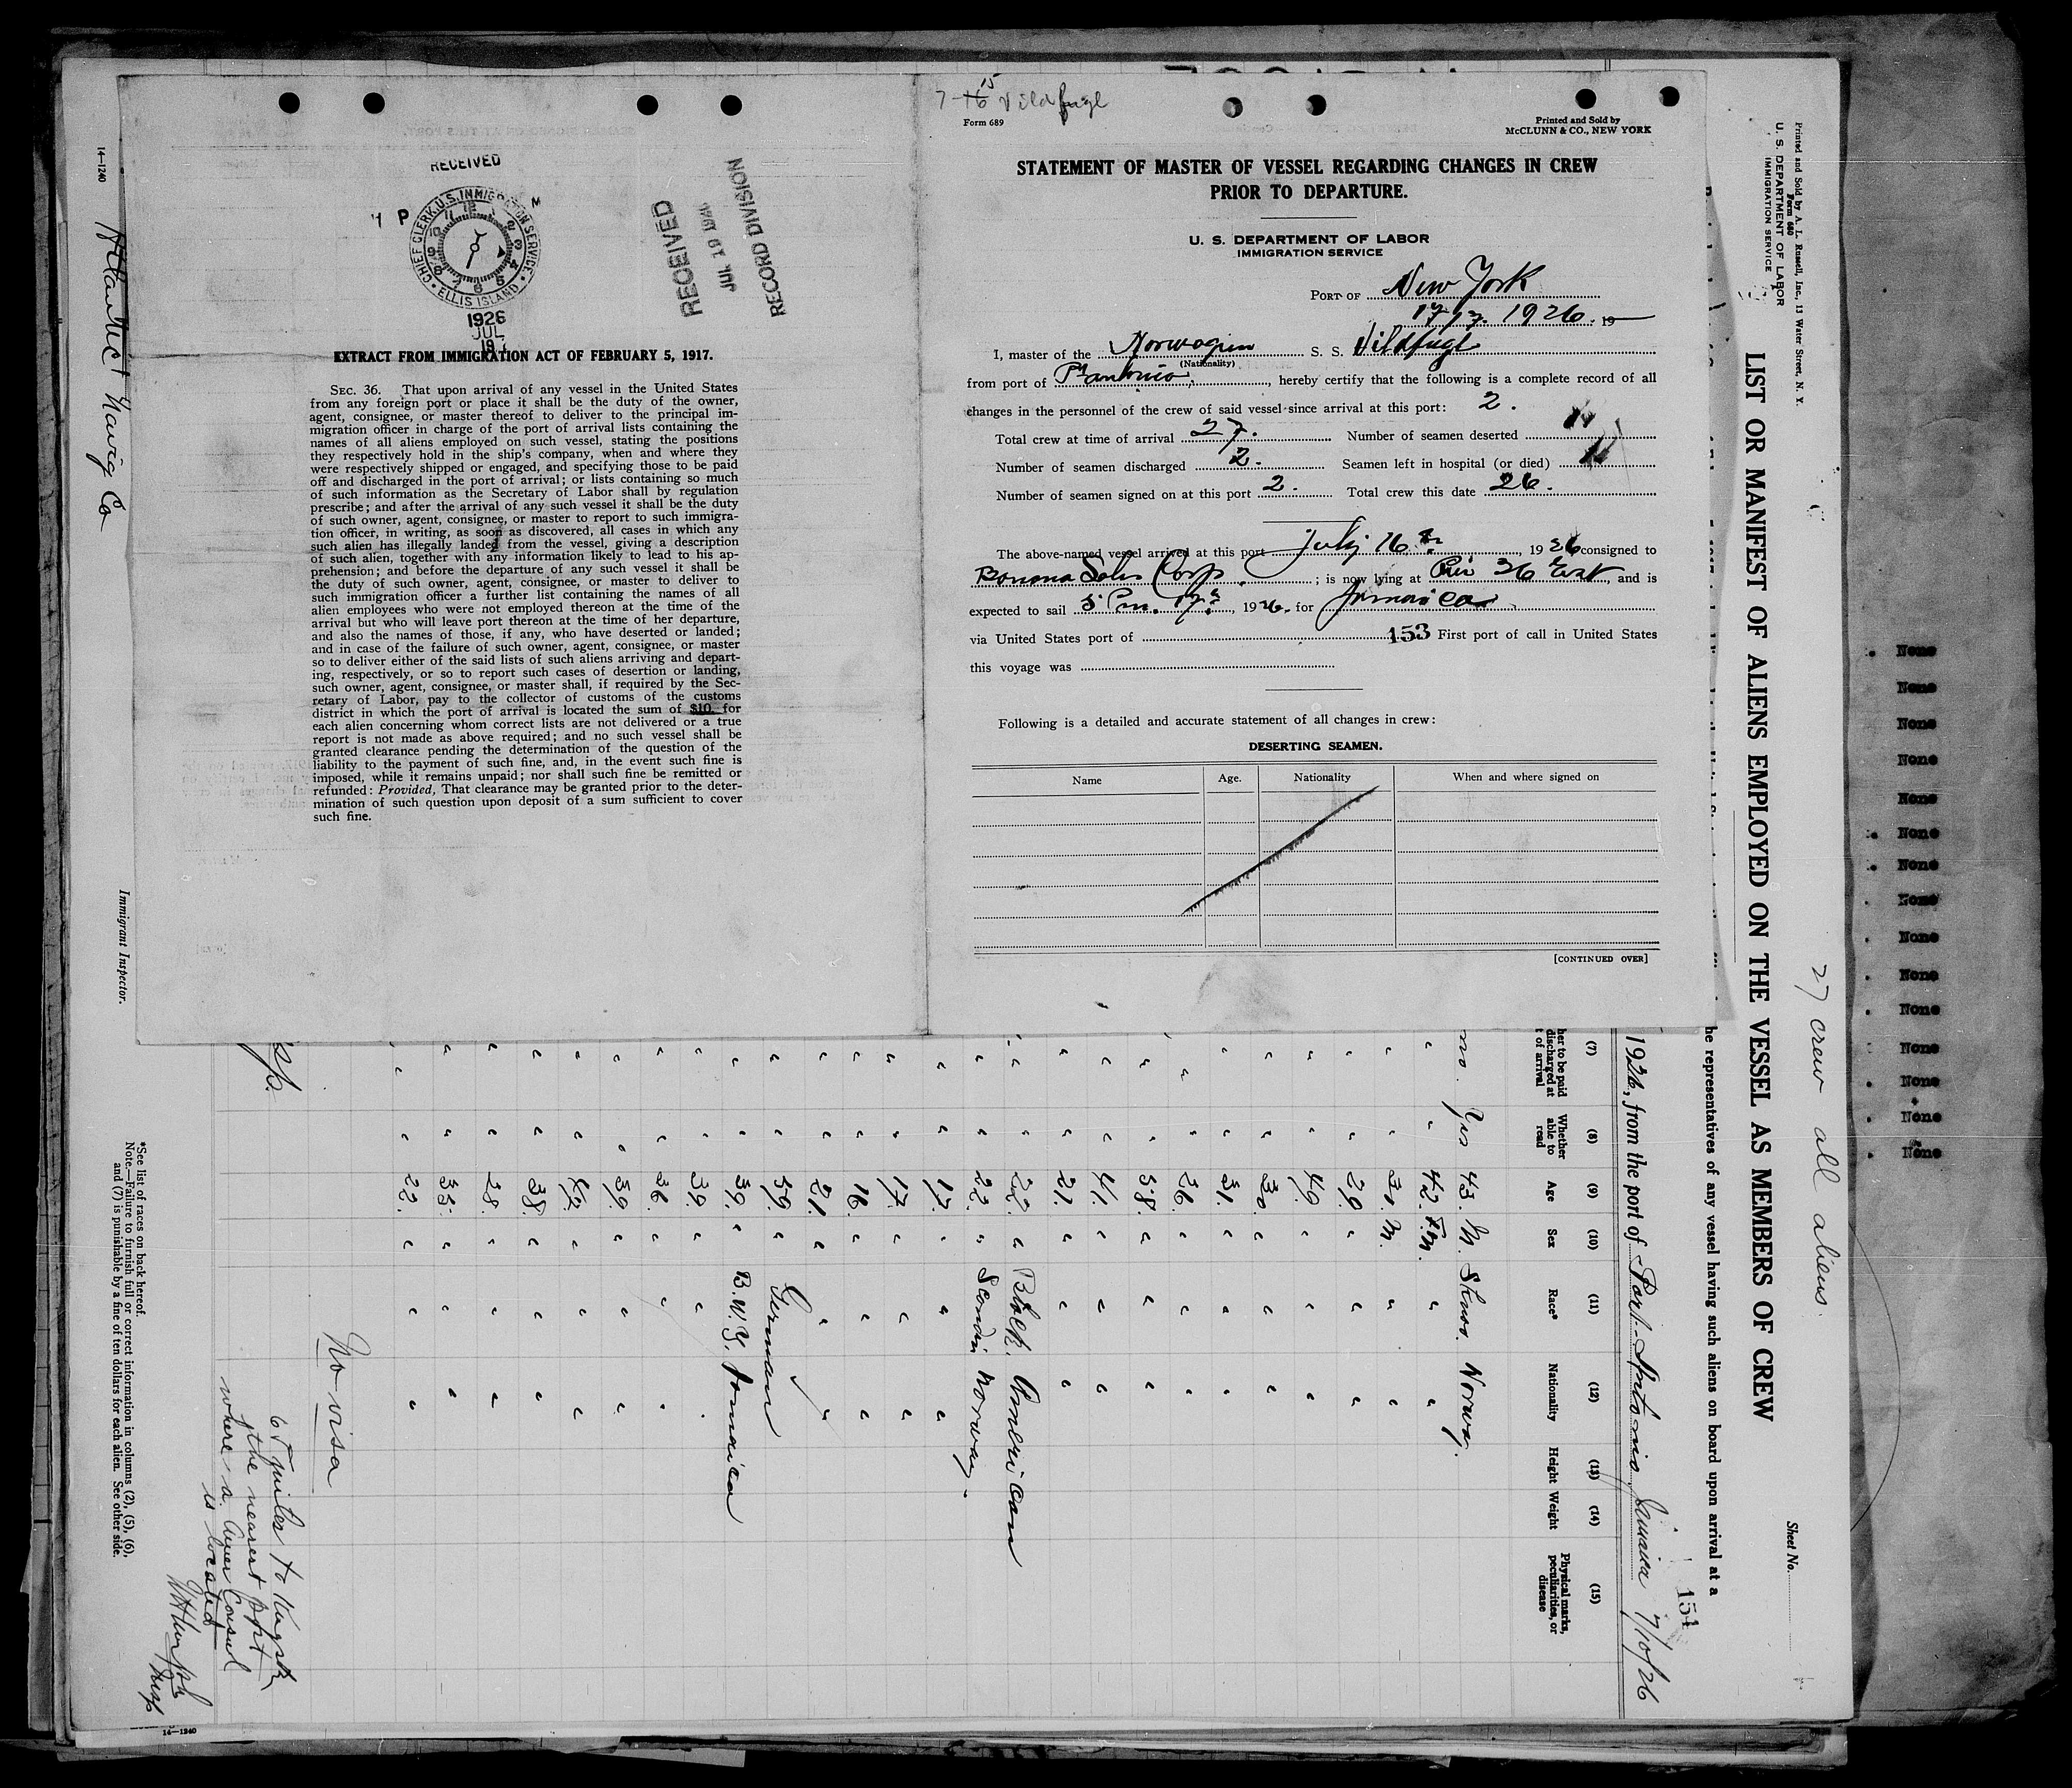 7-16 15 Vildfugl
Form 689
Printed and Sold by
McCLUNN & CO., NEW YORK
STATEMENT OF MASTER OF VESSEL REGARDING CHANGES IN CREW
PRIOR TO DEPARTURE.
U. S. DEPARTMENT OF LABOR
IMMIGRATION SERVICE
PORT OF New York
17/7. 1926. 19
I, master of the Norwegian S. S. Vildfugl
(Nationality)
from port of P. Antonio, hereby certify that the following is a complete record of all
changes in the personnel of the crew of said vessel since arrival at this port: 2.
Total crew at time of arrival 27. Number of seamen deserted
Number of seamen discharged 2. Seamen left in hospital (or died)
Number of seamen signed on at this port 2. Total crew this date 26.
The above-named vessel arrived at this port July 16th, 1926 consigned to
Banana Sales Corp.; is now lying at Pier 36 East, and is
expected to sail 5 Pm. 17th, 1926. for Jamaica
via United States port of 153 First port of call in United States
this voyage was
Following is a detailed and accurate statement of all changes in crew:
DESERTING SEAMEN.
Name Age. Nationality When and where signed on
[CONTINUED OVER]
RECEIVED
CHIEF CLERK. U.S. IMMIGRATION SERVICE
ELLIS ISLAND
1926
JUL
19
RECEIVED
JUL 19 1926
RECORD DIVISION
EXTRACT FROM IMMIGRATION ACT OF FEBRUARY 5, 1917.
SEC. 36. That upon arrival of any vessel in the United States
from any foreign port or place it shall be the duty of the owner,
agent, consignee, or master thereof to deliver to the principal im-
migration officer in charge of the port of arrival lists containing the
names of all aliens employed on such vessel, stating the positions
they respectively hold in the ship's company, when and where they
were respectively shipped or engaged, and specifying those to be paid
off and discharged in the port of arrival; or lists containing so much
of such information as the Secretary of Labor shall by regulation
prescribe; and after the arrival of any such vessel it shall be the duty
of such owner, agent, consignee, or master to report to such immigra-
tion officer, in writing, as soon as discovered, all cases in which any
such alien has illegally landed from the vessel, giving a description
of such alien, together with any information likely to lead to his ap-
prehension; and before the departure of any such vessel it shall be
the duty of such owner, agent, consignee, or master to deliver to
such immigration officer a further list containing the names of all
alien employees who were not employed thereon at the time of the
arrival but who will leave port thereon at the time of her departure,
and also the names of those, if any, who have deserted or landed;
and in case of the failure of such owner, agent, consignee, or master
so to deliver either of the said lists of such aliens arriving and depart-
ing, respectively, or so to report such cases of desertion or landing,
such owner, agent, consignee, or master shall, if required by the Sec-
retary of Labor, pay to the collector of customs of the customs
district in which the port of arrival is located the sum of $10 for
each alien concerning whom correct lists are not delivered or a true
report is not made as above required; and no such vessel shall be
granted clearance pending the determination of the question of the
liability to the payment of such fine, and, in the event such fine is
imposed, while it remains unpaid; nor shall such fine be remitted or
refunded: Provided, That clearance may be granted prior to the deter-
mination of such question upon deposit of a sum sufficient to cover
such fine.
Printed and Sold by A. L. Russell, Inc., 13 Water Street, N. Y.
Form 680
U. S. DEPARTMENT OF LABOR
IMMIGRATION SERVICE
27 crew all aliens.
Sheet No.
LIST OR MANIFEST OF ALIENS EMPLOYED ON THE VESSEL AS MEMBERS OF CREW
he representatives of any vessel having such aliens on board upon arrival at a
154
1926, from the port of Port-Antonio Jamaica 7/10/26
(7) (8) (9) (10) (11) (12) (13) (14) (15)
her to be paid
discharged at
t of arrival
Whether
able to
read
Age Sex Race* Nationality Height Weight
Physical marks,
peculiarities, or
disease
no. Yes 43. M. Skan. Norway.
" " 42. Fm. " "
" " 31. M. " "
" " 29. " " "
" " 49. " " "
" " 30. " " "
" " 31. " " "
" " 26. " " "
" " 58. " " "
" " 41. " " "
" " 21. " " "
" " 22. " Black. American
" " 22. " Scandin Norway.
" " 17. " " "
" " 17. " " "
" " 16. " " "
" " 21. " " "
" " 59. " German
" " 39. " B.W.I. Jamaica
" " 39. " " "
" " 36. " " "
" " 39. " " "
" " 42. " " "
" " 38. " " "
" " 28. " " "
" " 35. " " "
" " 22. " " "
No visa
65 miles to Kingston
the nearest port
where a Amer Consul
is located
*See list of races on back hereof.
Note.—Failure to furnish full or correct information in columns (2), (5), (6),
and (7) is punishable by a fine of ten dollars for each alien. See other side.
14—1240
14—1240
Atlantic Navig Co
Immigrant Inspector.
None
None
None
None
None
None
None
None
None
None
None
None
None
None
None